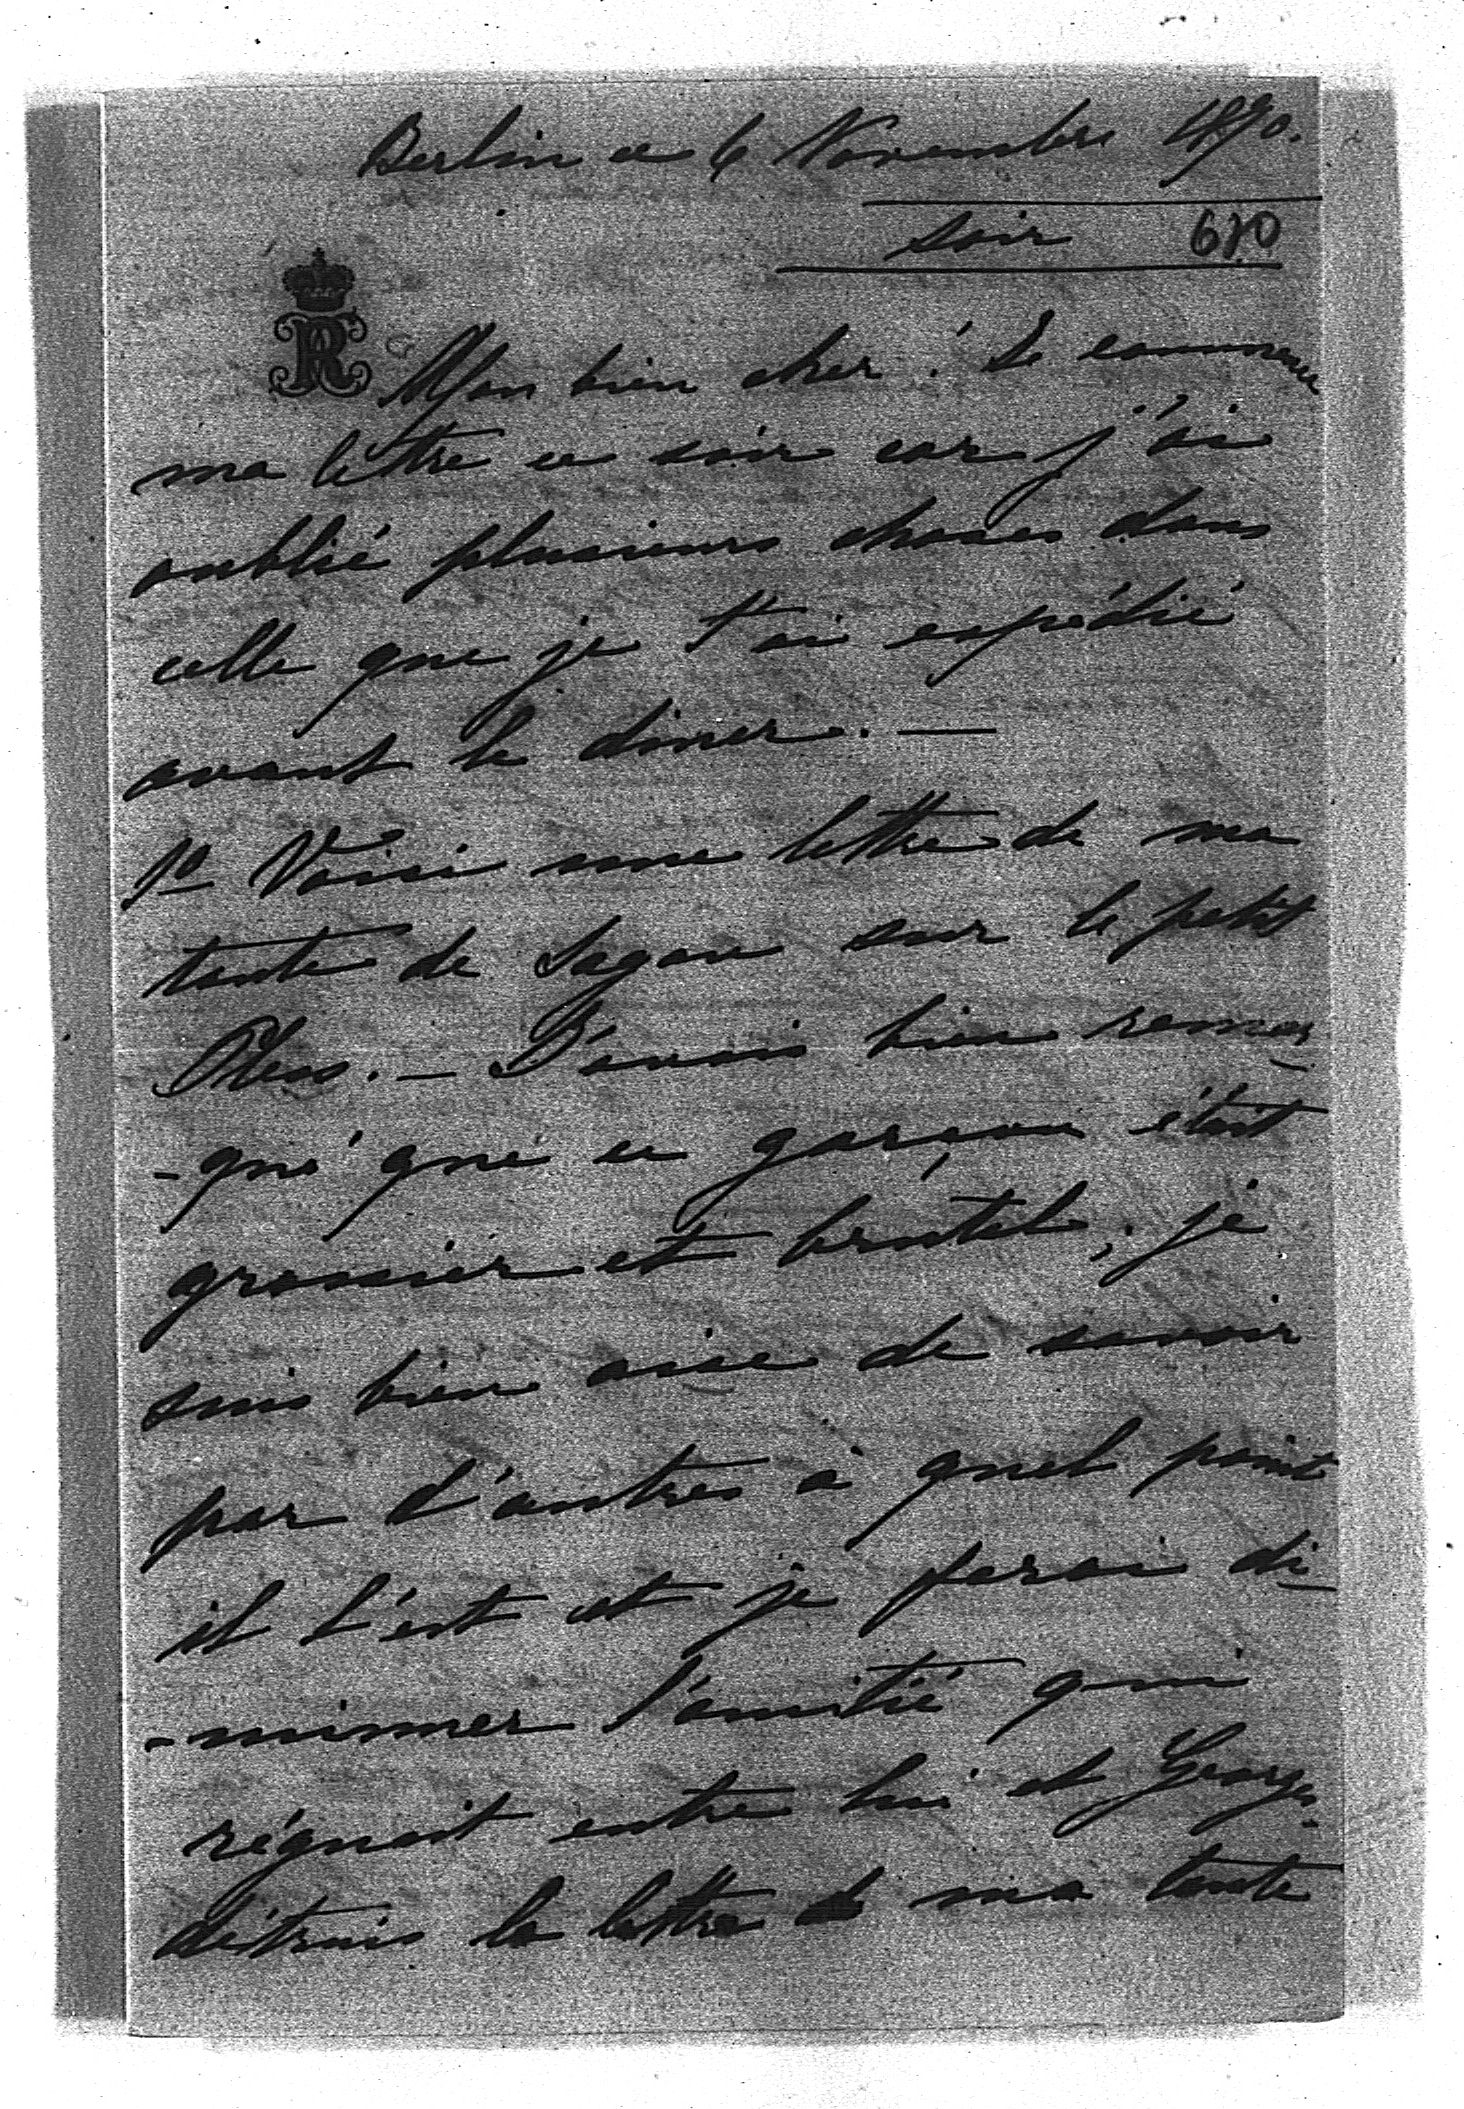 Berlin ce 6 Novembre 1890.
soir 620
R
Mon bien cher! Je commence
ma lettre ce soir car j'ai
oublié plusieurs choses dans
celle que je t'ai expédié
avant le diner. —
1º Voici une lettre de ma
tante de Sagan sur le petit
Pless. — J'avais bien remar-
-qué que ce garçon était
grossier et brutal, je
suis bien aise de savoir
par d'autres à quel point
il l'est et je ferai di-
-minuer l'amitié qui
régnait entre lui et Georges.
détruis la lettre de ma tante